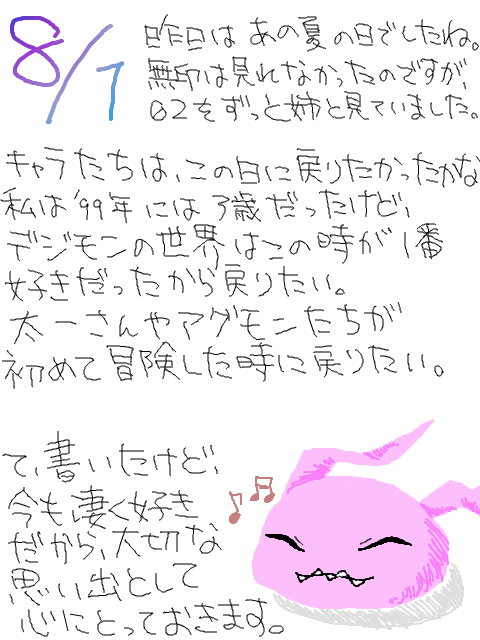 8/1
昨日は あの夏の日でしたね。
無印は見れなかったのですが、
02をずっと姉と見ていました。
キャラたちは、この日に戻りたかったかな
私は'99年には3歳だったけど、
デジモンの世界はこの時が1番
好きだったから戻りたい。
太一さんやアグモンたちが
初めて冒険した時に戻りたい。
て、書いたけど、
今も凄く好き
だから、大切な
思い出として
心にとっておきます。